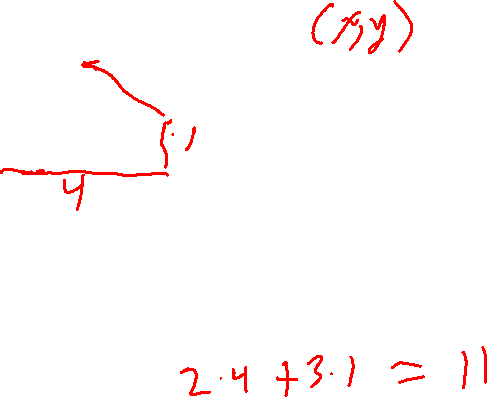 (x,y)
1
4
2·4+3·1=11